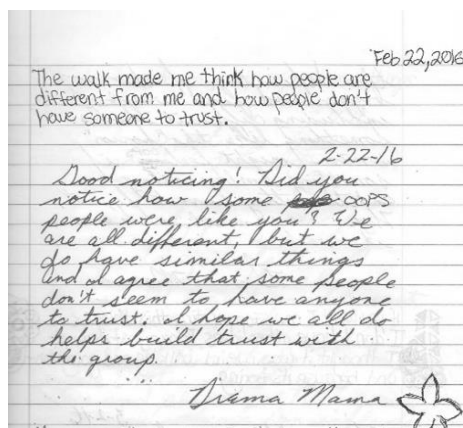 Feb 22, 2016
The walk made me think how people are
different from me and how people don't
have someone to trust.
2-22-16
Good noticing! Did you
notice how some OOPS
people were like you? We
are all different, but we
do have similar things
and I agree that some people
don't seem to have anyone
to trust. I hope we all do
helps build trust with
the group.
Drama Mama